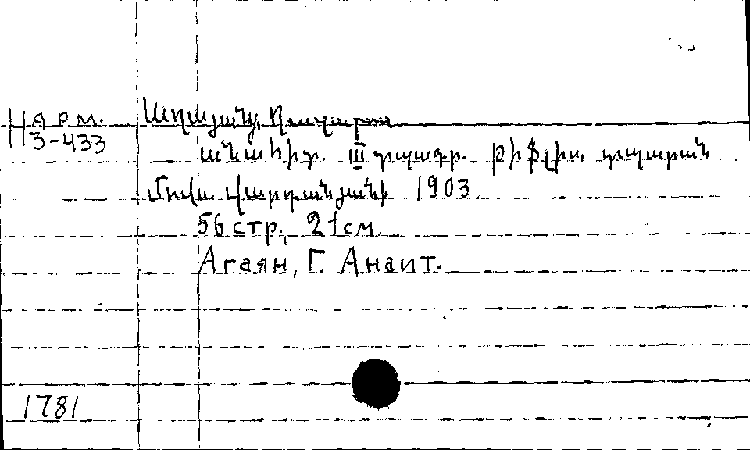 Н арм.
3-433
Աղայանց, Ղազարոս
Անահիտ. III տպագր. Թիֆլիս. տպարան
Մովս. Վարդանյանի 1903
56 стр., 21 см
Агаян, Г. Анаит.
1781